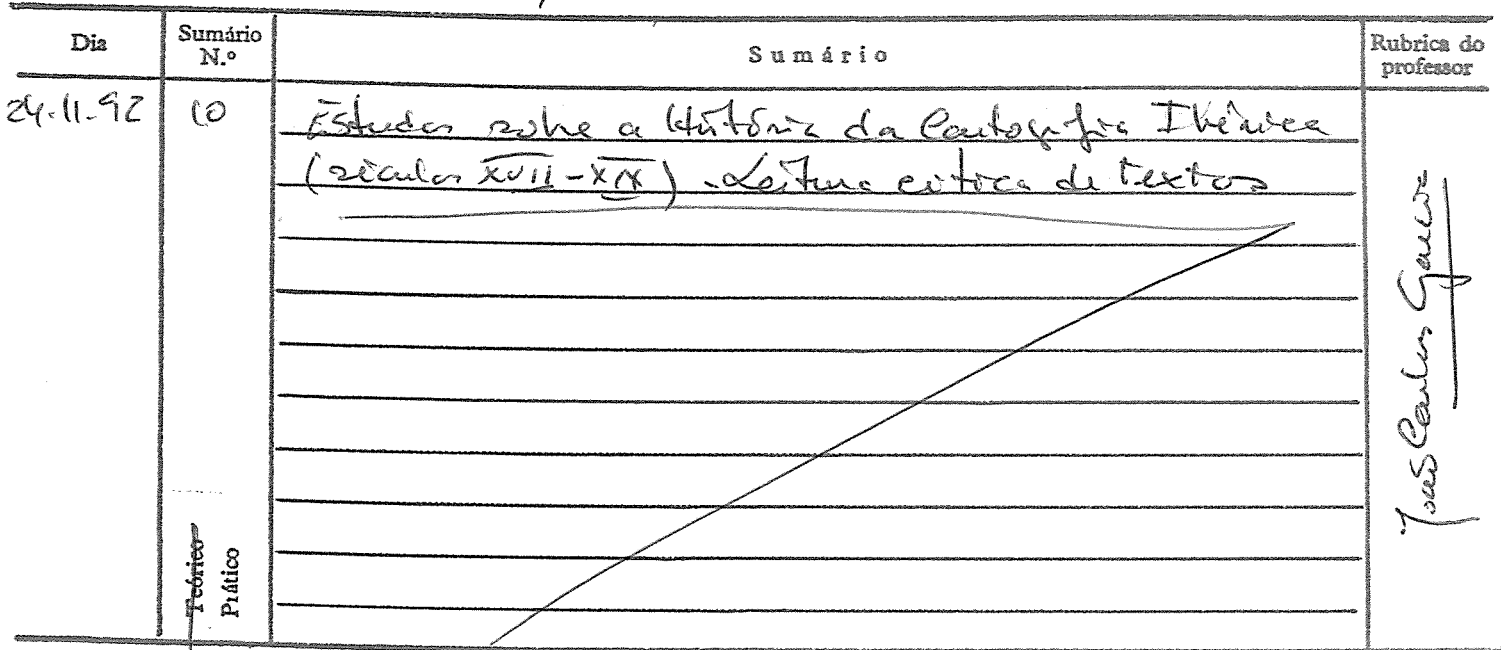 Dia
Sumário N.º
Sumário
Rubrica do professor
24-11-92
10
Estudos sobre a História da Cartografia Ibérica
(séculos XVII-XIX). Leitura crítica de textos
João Carlos Garcia
Teórico
Prático